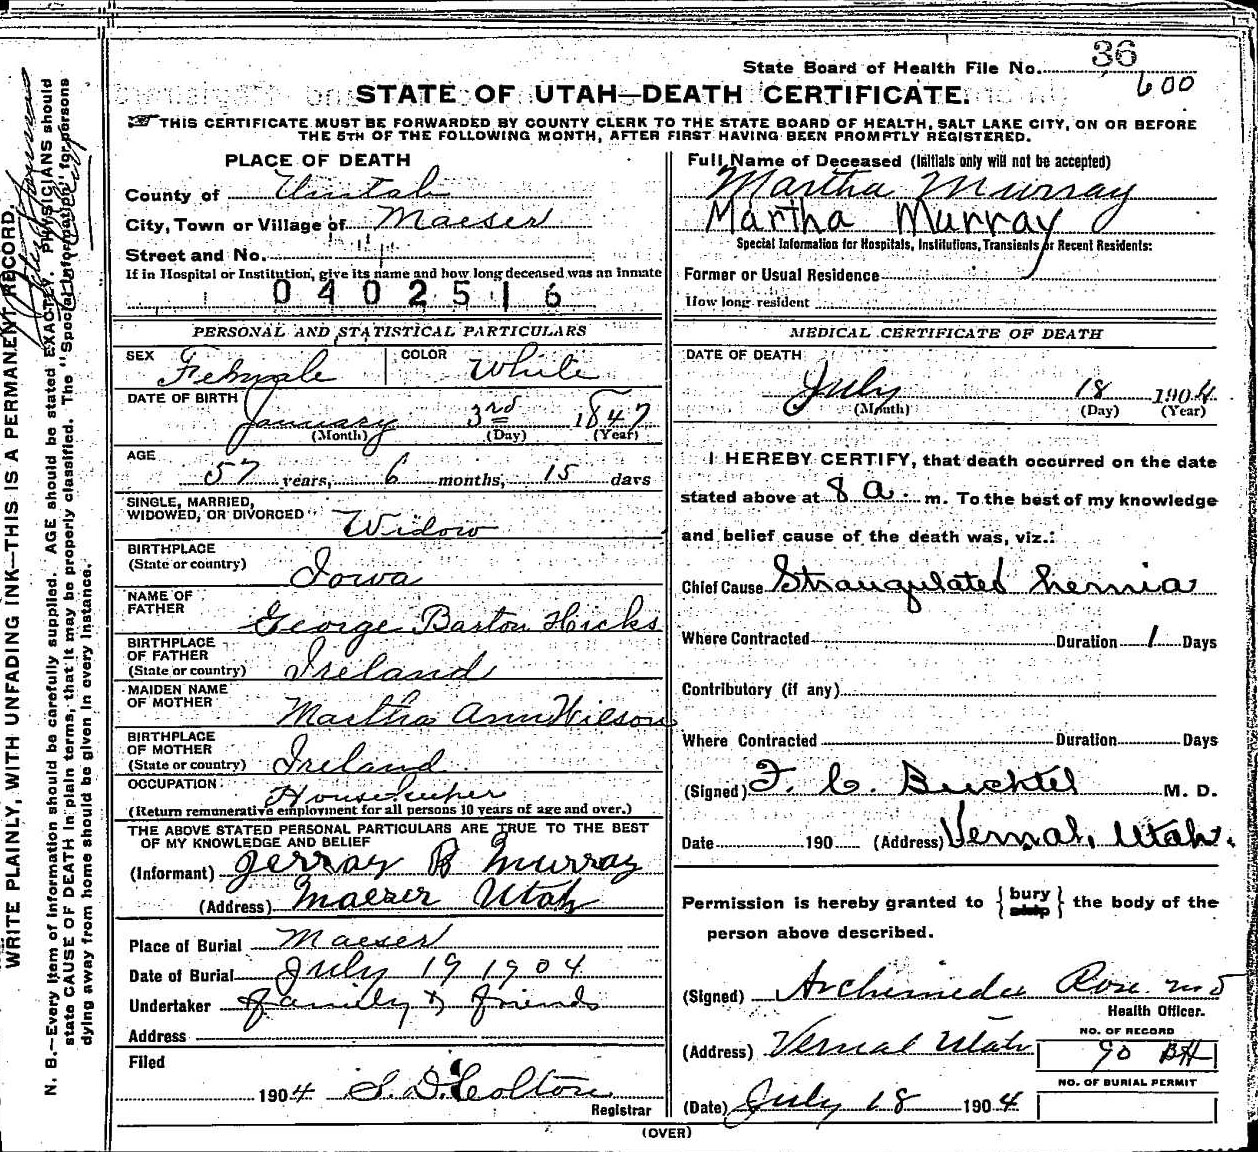 36
State Board of Health File No.
600
STATE OF UTAH—DEATH CERTIFICATE.
THIS CERTIFICATE MUST BE FORWARDED BY COUNTY CLERK TO THE STATE BOARD OF HEALTH, SALT LAKE CITY, ON OR BEFORE
THE 5TH OF THE FOLLOWING MONTH, AFTER FIRST HAVING BEEN PROMPTLY REGISTERED.
PLACE OF DEATH
County of Uintah
City, Town or Village of Maeser
Street and No.
If in Hospital or Institution, give its name and how long deceased was an inmate
0402516
PERSONAL AND STATISTICAL PARTICULARS
SEX Female COLOR White
DATE OF BIRTH
January 3rd 1847
(Month) (Day) (Year)
AGE
57 years, 6 months, 15 days
SINGLE, MARRIED,
WIDOWED, OR DIVORCED Widow
BIRTHPLACE
(State or country) Iowa
NAME OF
FATHER George Barton Hicks
BIRTHPLACE
OF FATHER
(State or country) Ireland
MAIDEN NAME
OF MOTHER Martha Ann Wilson
BIRTHPLACE
OF MOTHER
(State or country) Ireland
OCCUPATION Housekeeper
(Return remunerative employment for all persons 10 years of age and over.)
THE ABOVE STATED PERSONAL PARTICULARS ARE TRUE TO THE BEST
OF MY KNOWLEDGE AND BELIEF
(Informant) Jerray B Murray
(Address) Maeser Utah
Place of Burial Maeser
Date of Burial July 19 1904
Undertaker family & friends
Address
Filed
1904 S. D. Colton
Registrar
Full Name of Deceased (Initials only will not be accepted)
Martha Murray
Martha Murray
Special Information for Hospitals, Institutions, Transients or Recent Residents:
Former or Usual Residence
How long resident
MEDICAL CERTIFICATE OF DEATH
DATE OF DEATH
July 18 1904
(Month) (Day) (Year)
I HEREBY CERTIFY, that death occurred on the date
stated above at 8 a. m. To the best of my knowledge
and belief cause of the death was, viz.:
Chief Cause Strangulated hernia
Where Contracted Duration 1 Days
Contributory (if any)
Where Contracted Duration Days
(Signed) F. C. Buchtel M. D.
Date 190 (Address) Vernal, Utah.
Permission is hereby granted to { bury ship } the body of the
person above described.
(Signed) Archimedes Rose M D
Health Officer.
(Address) Vernal Utah
NO. OF RECORD
90 BH
NO. OF BURIAL PERMIT
(Date) July 18 1904
(OVER)
WRITE PLAINLY, WITH UNFADING INK—THIS IS A PERMANENT RECORD.
N. B.—Every item of information should be carefully supplied. AGE should be stated EXACTLY. PHYSICIANS should
state CAUSE OF DEATH in plain terms, that it may be properly classified. The "Special Information" for persons
dying away from home should be given in every instance.